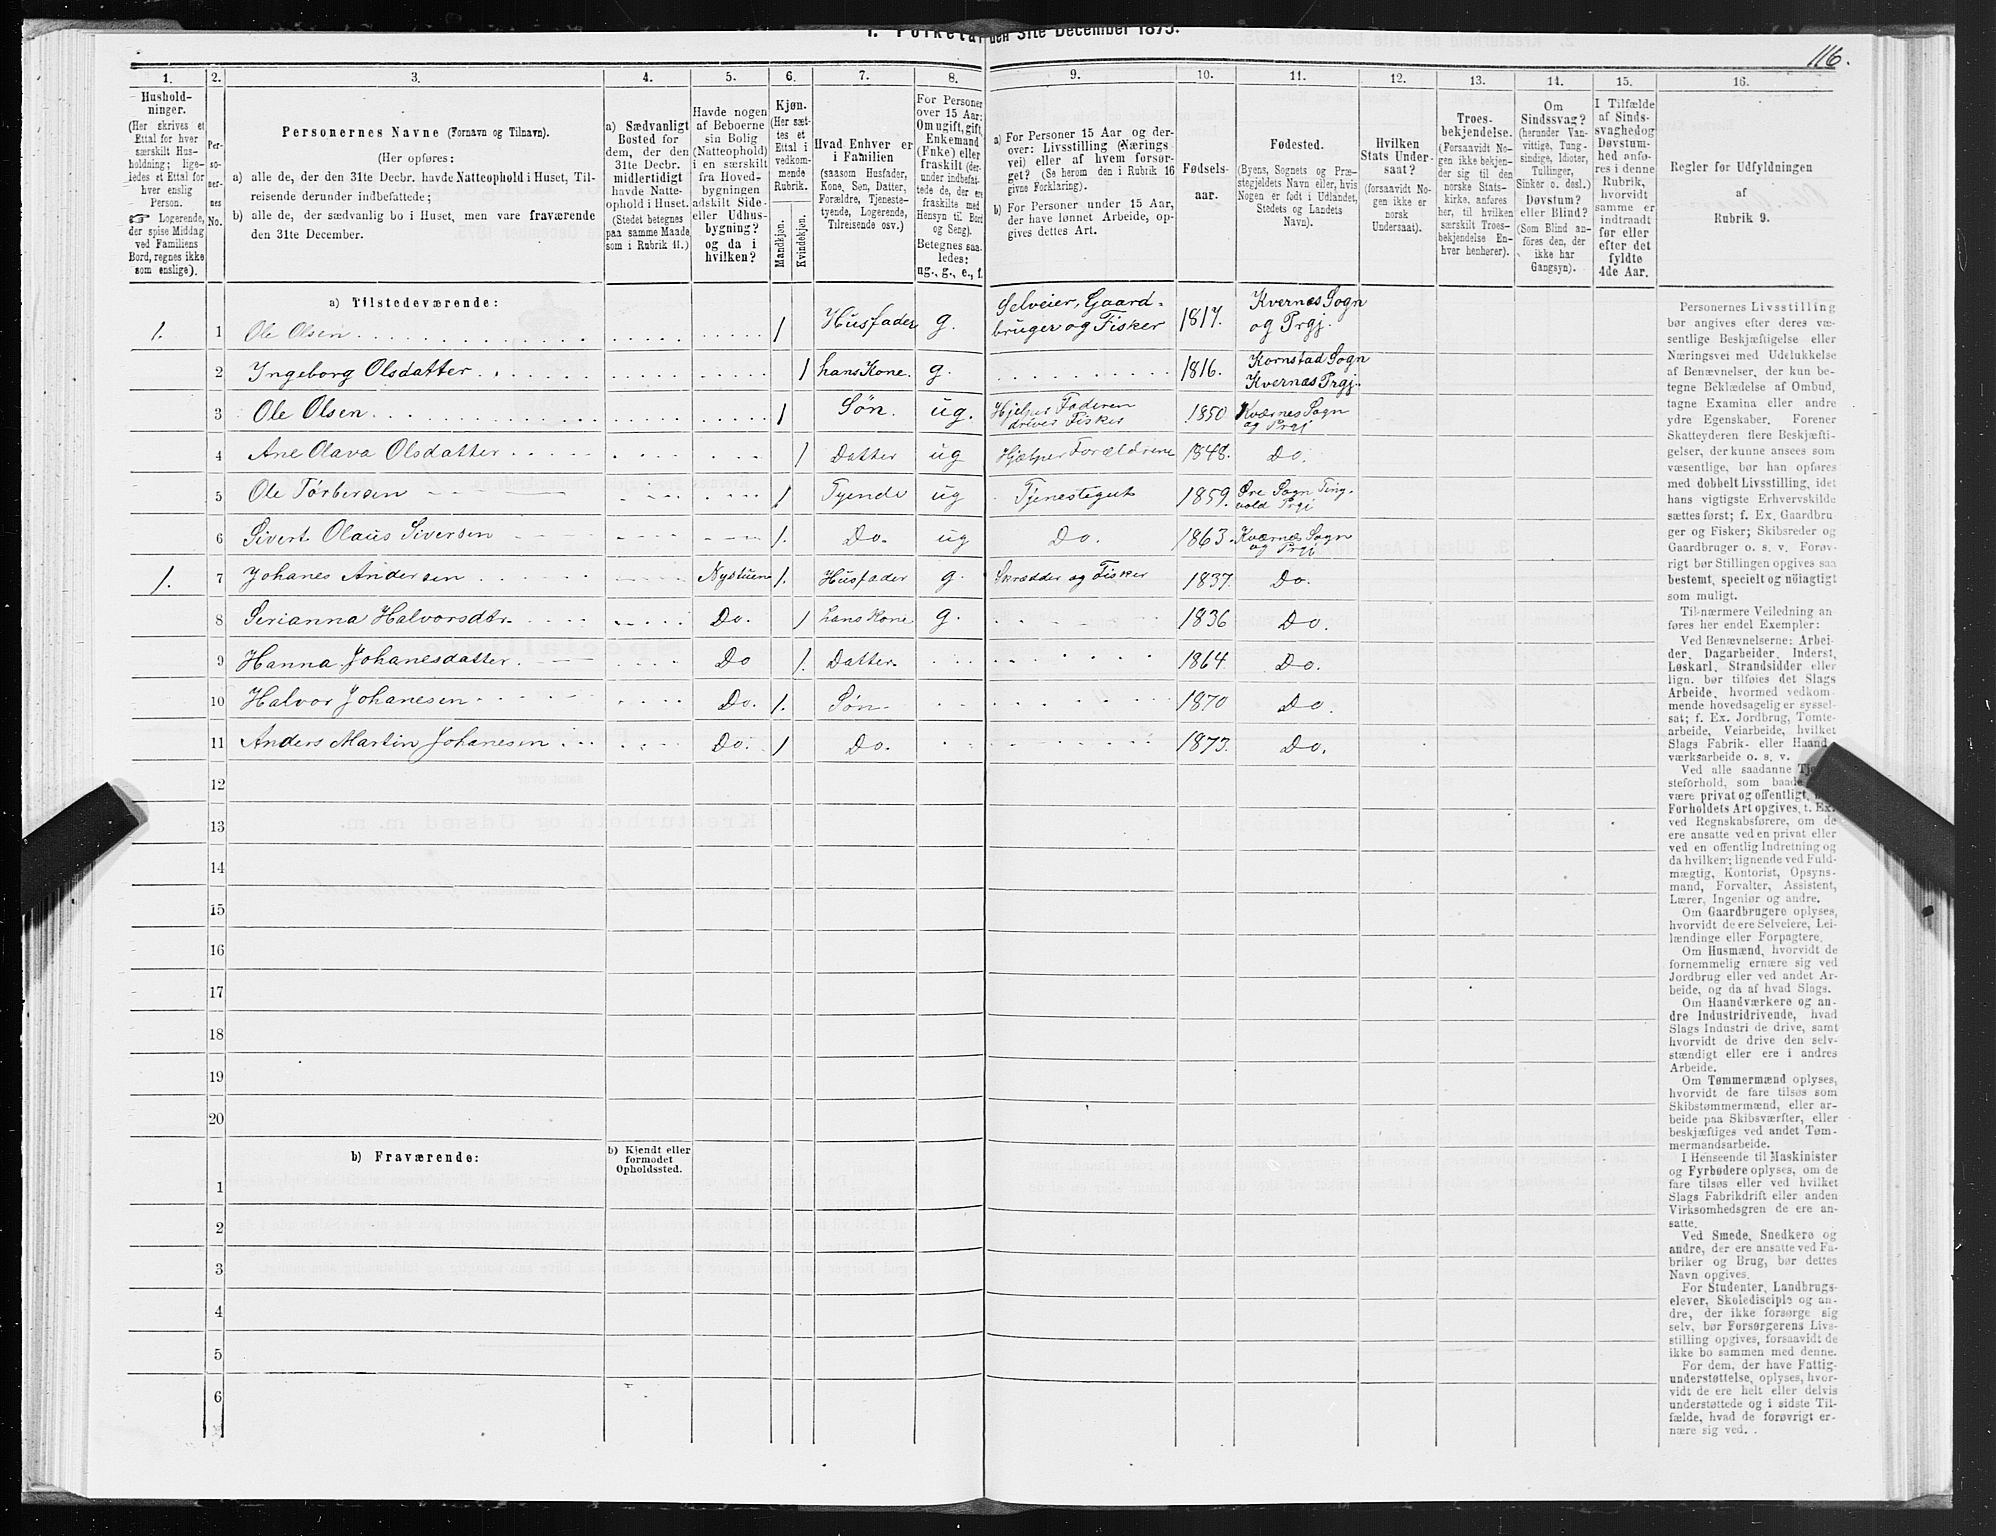 1. Folketal den 31te December 1875.
116.
1. 2. 3. 4. 5. 6. 7. 8. 9. 10. 11. 12. 13. 14. 15. 16.
Hushold-
ninger.
(Her skrives et
Ettal for hver
særskilt Hus-
holdning; lige-
ledes et Ettal for
hver enslig
Person.
☞ Logerende,
der spise Middag
ved Familiens
Bord, regnes ikke
som enslige).
Per-
so-
ner-
nes
No.
Personernes Navne (Fornavn og Tilnavn).
(Her opføres:
a) alle de, der den 31te Decbr. havde Natteophold i Huset, Til-
reisende derunder indbefattede;
b) alle de, der sædvanlig bo i Huset, men vare fraværende
den 31te December.
a) Sædvanligt
Bosted for
dem, der den
31te Decbr.
midlertidigt
havde Natte-
ophold i Huset.
(Stedet betegnes
paa samme Maade
som i Rubrik 11.)
Havde nogen
af Beboerne
sin Bolig
(Natteophold)
i en særskilt
fra Hoved-
bygningen
adskilt Side-
eller Udhus-
bygning?
og da i
hvilken?
Kjøn.
(Her sæt-
tes et
Ettal i
vedkom-
mende
Rubrik.
Mandkjøn.
Kvindekjøn.
Hvad Enhver er
i Familien
(saasom Husfader,
Kone, Søn, Datter,
Forældre, Tjeneste-
tyende, Logerende,
Tilreisende osv.)
For Personer
over 15 Aar:
Om ugift, gift,
Enkemand
(Enke) eller
fraskilt (der-
under indbefat-
tede de, der ere
fraskilte med
Hensyn til Bord
og Seng).
Betegnes saa-
ledes:
ug., g., e., f.
a) For Personer 15 Aar og der-
over: Livsstilling (Nærings-
vei) eller af hvem forsør-
get? (Se herom den i Rubrik 16
givne Forklaring).
b) For Personer under 15 Aar,
der have lønnet Arbeide, op-
gives dettes Art.
Fødsels-
aar.
Fødested.
(Byens, Sognets og Præ-
stegjeldets Navn eller, hvis
Nogen er født i Udlandet,
Stedets og Landets
Navn).
Hvilken
Stats Under-
saat?
(forsaavidt No-
gen ikke er
norsk
Undersaat).
Troes-
bekjendelse.
(Forsaavidt No-
gen ikke bekjen-
der sig til den
norske Stats-
kirke, anføres
her, til hvilken
særskilt Troes-
bekjendelse En-
hver henhører).
Om
Sindssvag?
(herunder Van-
vittige, Tung-
sindige, Idioter,
Tullinger,
Sinker o. desl.)
Døvstum?
eller Blind?
(Som Blind an-
føres den, der
ikke har
Gangsyn).
I Tilfælde
af Sinds-
svaghed og
Døvstum-
hed anfø-
res i denne
Rubrik,
hvorvidt
samme er
indtraadt
før eller
efter det
fyldte
4de Aar.
Regler for Udfyldningen
af
Rubrik 9.
a) Tilstedeværende:
1. 1 Ole Olsen 1 Husfader g. Selveier, Gaard-
bruger og Fisker 1817. Kvernes Sogn
og Prgj.
2 Ingeborg Olsdatter 1 hans Kone. g. 1816. Kornstad Sogn
Kvernes Prgj.
3 Ole Olsen 1 Søn. ug. Hjelper Faderen
driver Fisker 1850 Kværnes Sogn
og Prgj
4 Ane Olava Olsdatter 1 Datter ug Hjælper Forældrene 1848. Do.
5 Ole Torbersen 1 Tyende ug Tjenestegut 1859. Øre Sogn Ting-
vold Prgj
6 Sivert Olaus Siversen 1. Do. ug Do. 1863. Kværnes Sogn
og Prgj
1. 7 Johanes Andersen Nystuen 1. Husfader g. Skrædder og Fisker 1837. Do.
8 Serianna Halvorsdtr. Do. 1 hans Kone g. 1836 Do.
9 Hanna Johanesdatter. Do 1. Datter. 1864. Do.
10 Halvor Johanesen Do. 1. Søn 1870 Do.
11 Anders Martin Johanesen Do. 1 Do. 1873. Do.
12
13
14
15
16
17
18
19
20
b) Fraværende:
b) Kjendt eller
formodet
Opholdssted.
1
2
3
4
5
6
Personernes Livsstilling
bør angives efter deres væ-
sentlige Beskjæftigelse eller
Næringsvei med Udelukkelse
af Benævnelser, der kun be-
tegne Beklædelse af Ombud,
tagne Examina eller andre
ydre Egenskaber. Forener
Skatteyderen flere Beskjæfti-
gelser, der kunne ansees som
væsentlige, bør han opføres
med dobbelt Livsstilling, idet
hans vigtigste Erhvervskilde
sættes først; f. Ex. Gaardbru-
ger og Fisker; Skibsreder og
Gaardbruger o. s. v. Forøv-
rigt bør Stillingen opgives saa
bestemt, specielt og nöiagtigt
som muligt.
Til nærmere Veiledning an-
føres her endel Exempler:
Ved Benævnelserne: Arbei-
der, Dagarbeider, Inderst,
Løskarl, Strandsidder eller
lign. bør tilføies det Slags
Arbeide, hvormed vedkom-
mende hovedsagelig er syssel-
sat; f. Ex. Jordbrug, Tomte-
arbeide, Veiarbeide, hvilket
Slags Fabrik- eller Haand-
værksarbeide o. s. v.
Ved alle saadanne
steforhold, som baade
være privat og offentligt,
Forholdets Art opgives, t. Ex.
ved Regnskabsførere, om de
ere ansatte ved en privat eller
ved en offentlig Indretning og
da hvilken; lignende ved Fuld-
mægtig, Kontorist, Opsyns-
mand, Forvalter, Assistent,
Lærer, Ingeniør og andre.
Om Gaardbrugere oplyses,
hvorvidt de ere Selveiere, Lei-
lændinge eller Forpagtere.
Om Husmænd, hvorvidt de
fornemmelig ernære sig ved
Jordbrug eller ved andet Ar-
beide, og da af hvad Slags.
Om Haandværkere og an-
dre Industridrivende, hvad
Slags Industri de drive, samt
hvorvidt de drive den selv-
stændigt eller ere i andres
Arbeide.
Om Tømmermænd oplyses,
hvorvidt de fare tilsøs som
Skibstømmermænd, eller ar-
beide paa Skibsværfter, eller
beskjæftiges ved andet Tøm-
mermandsarbeide.
I Henseende til Maskinister
og Fyrbødere oplyses, om de
fare tilsøs eller ved hvilket
Slags Fabrikdrift eller anden
Virksomhedsgren de ere an-
satte.
Ved Smede, Snedkere og
andre, der ere ansatte ved Fa-
briker og Brug, bør dettes
Navn opgives.
For Studenter, Landbrugs-
elever, Skoledisciple og an-
dre, der ikke forsørge sig
selv, bør Forsørgerens Livs-
stilling opgives, forsaavidt de
ikke bo sammen med denne.
For dem, der have Fattig-
understøttelse, oplyses, hvor-
vidt de ere helt eller delvis
understøttede og i sidste Til-
fælde, hvad de forøvrigt er-
nære sig ved.